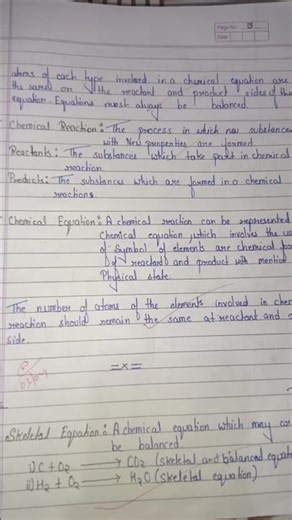 Page No.
Date
atoms of each type involved in a chemical equation are
the same on the reactant and product sides of the
equation. Equations must always be balanced.
Chemical Reaction: The process in which new substances
with New properties are formed
Reactants: The substances which take part in chemical
reaction.
Products: The substances which are formed in a chemical
reactions.
Chemical Equation: A chemical reaction can be represented
Chemical equation, which involves the us
of Symbol of elements are chemical for
of reactant and product with mention
Physical state.
The number of atoms of the elements involved in chem
reaction should remain the same at reactant and
side.
=x=
Skeletal Equation: A chemical equation which may or
be balanced.
i) C + O2 → CO2 (skeletal and balanced equati
ii) H2 + O2 → H2O (skeletal equation)